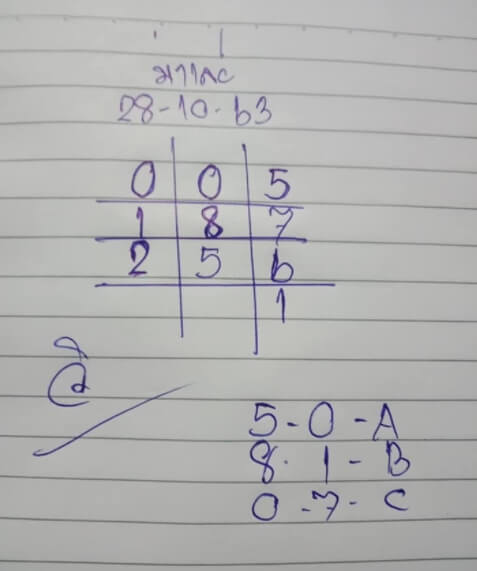 28-10-63
0 0 5
1 8 7
2 5 6
1
5-0-A
8-1-B
0-7-C